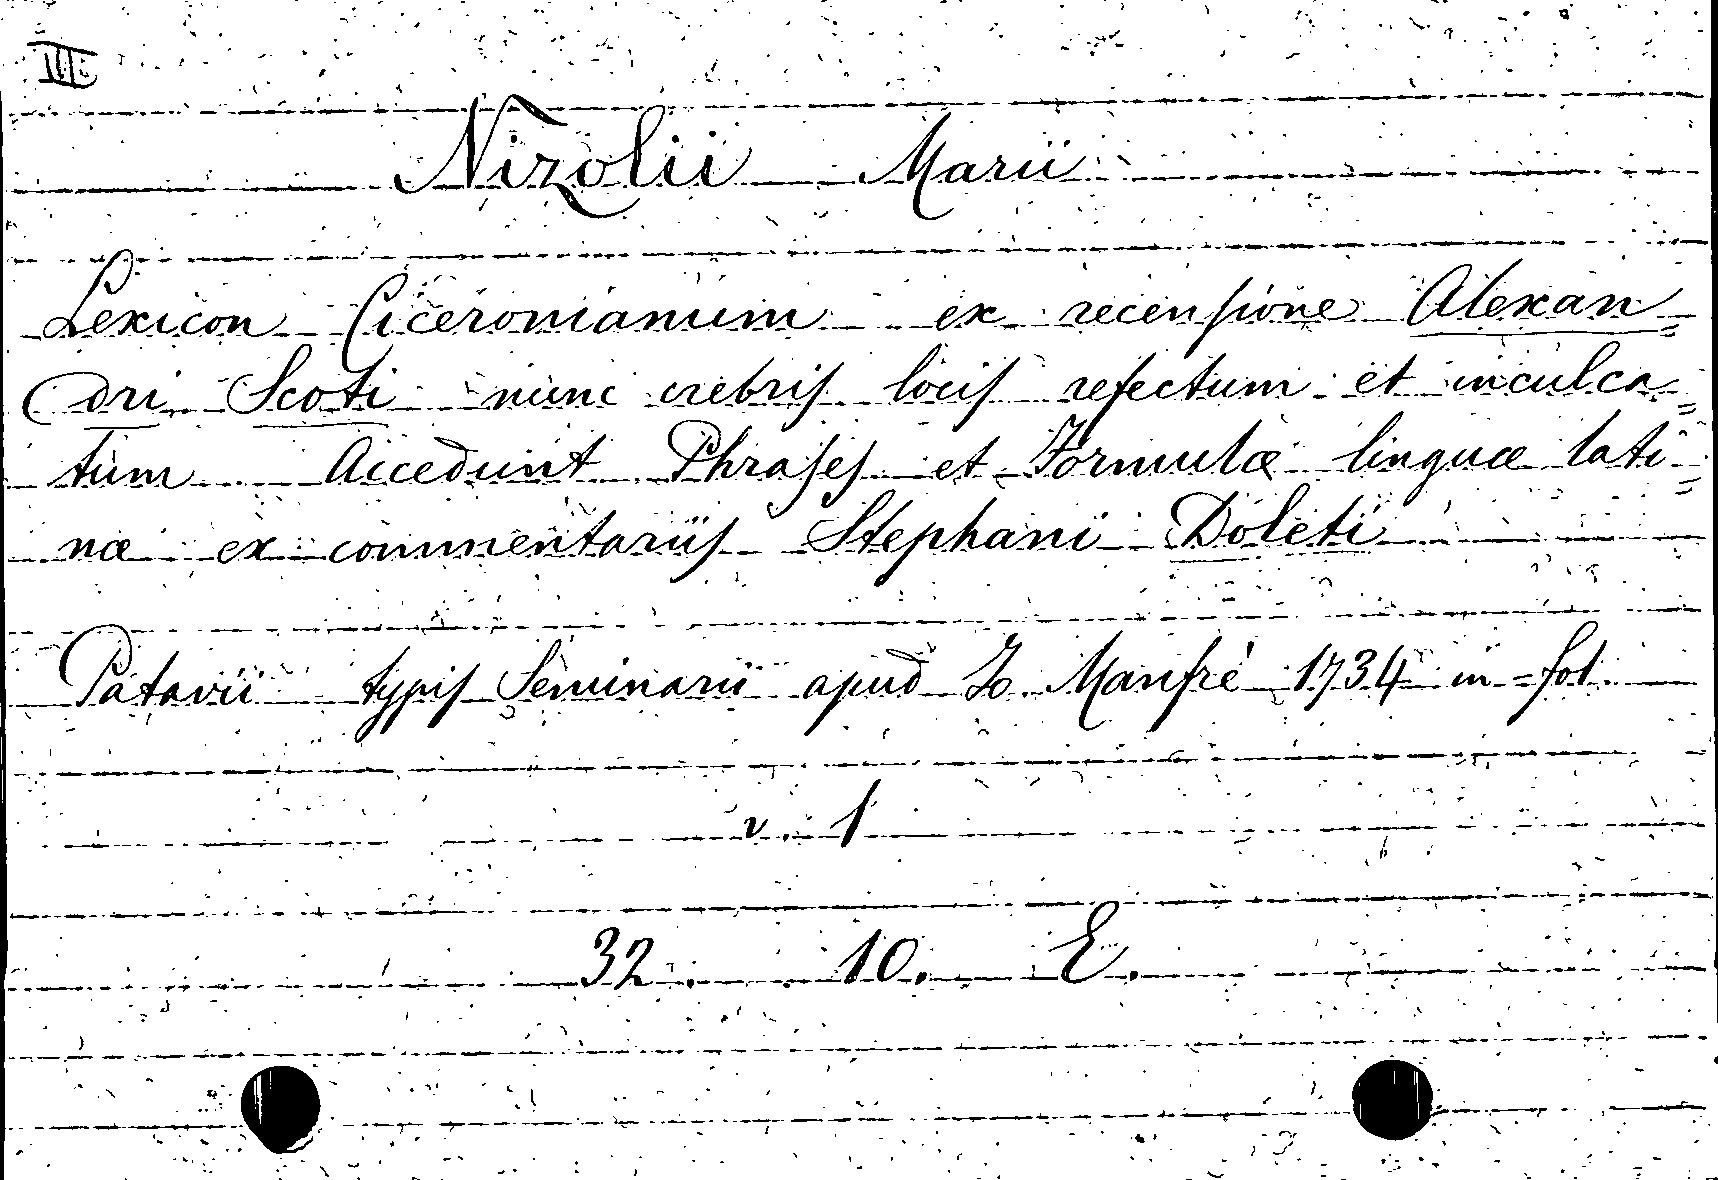 III
Nizolii Marii
Lexicon Ciceronianum ex recensione Alexan=
dri Scoti nunc crebris locis refectum et inculca=
tum Accedunt Phrases et Formulæ linguæ lati=
næ ex commentariis Stephani Doleti
Patavii typis Seminarii apud Jo. Manfrè 1734 in=fol.
v. 1
32. 10. E.